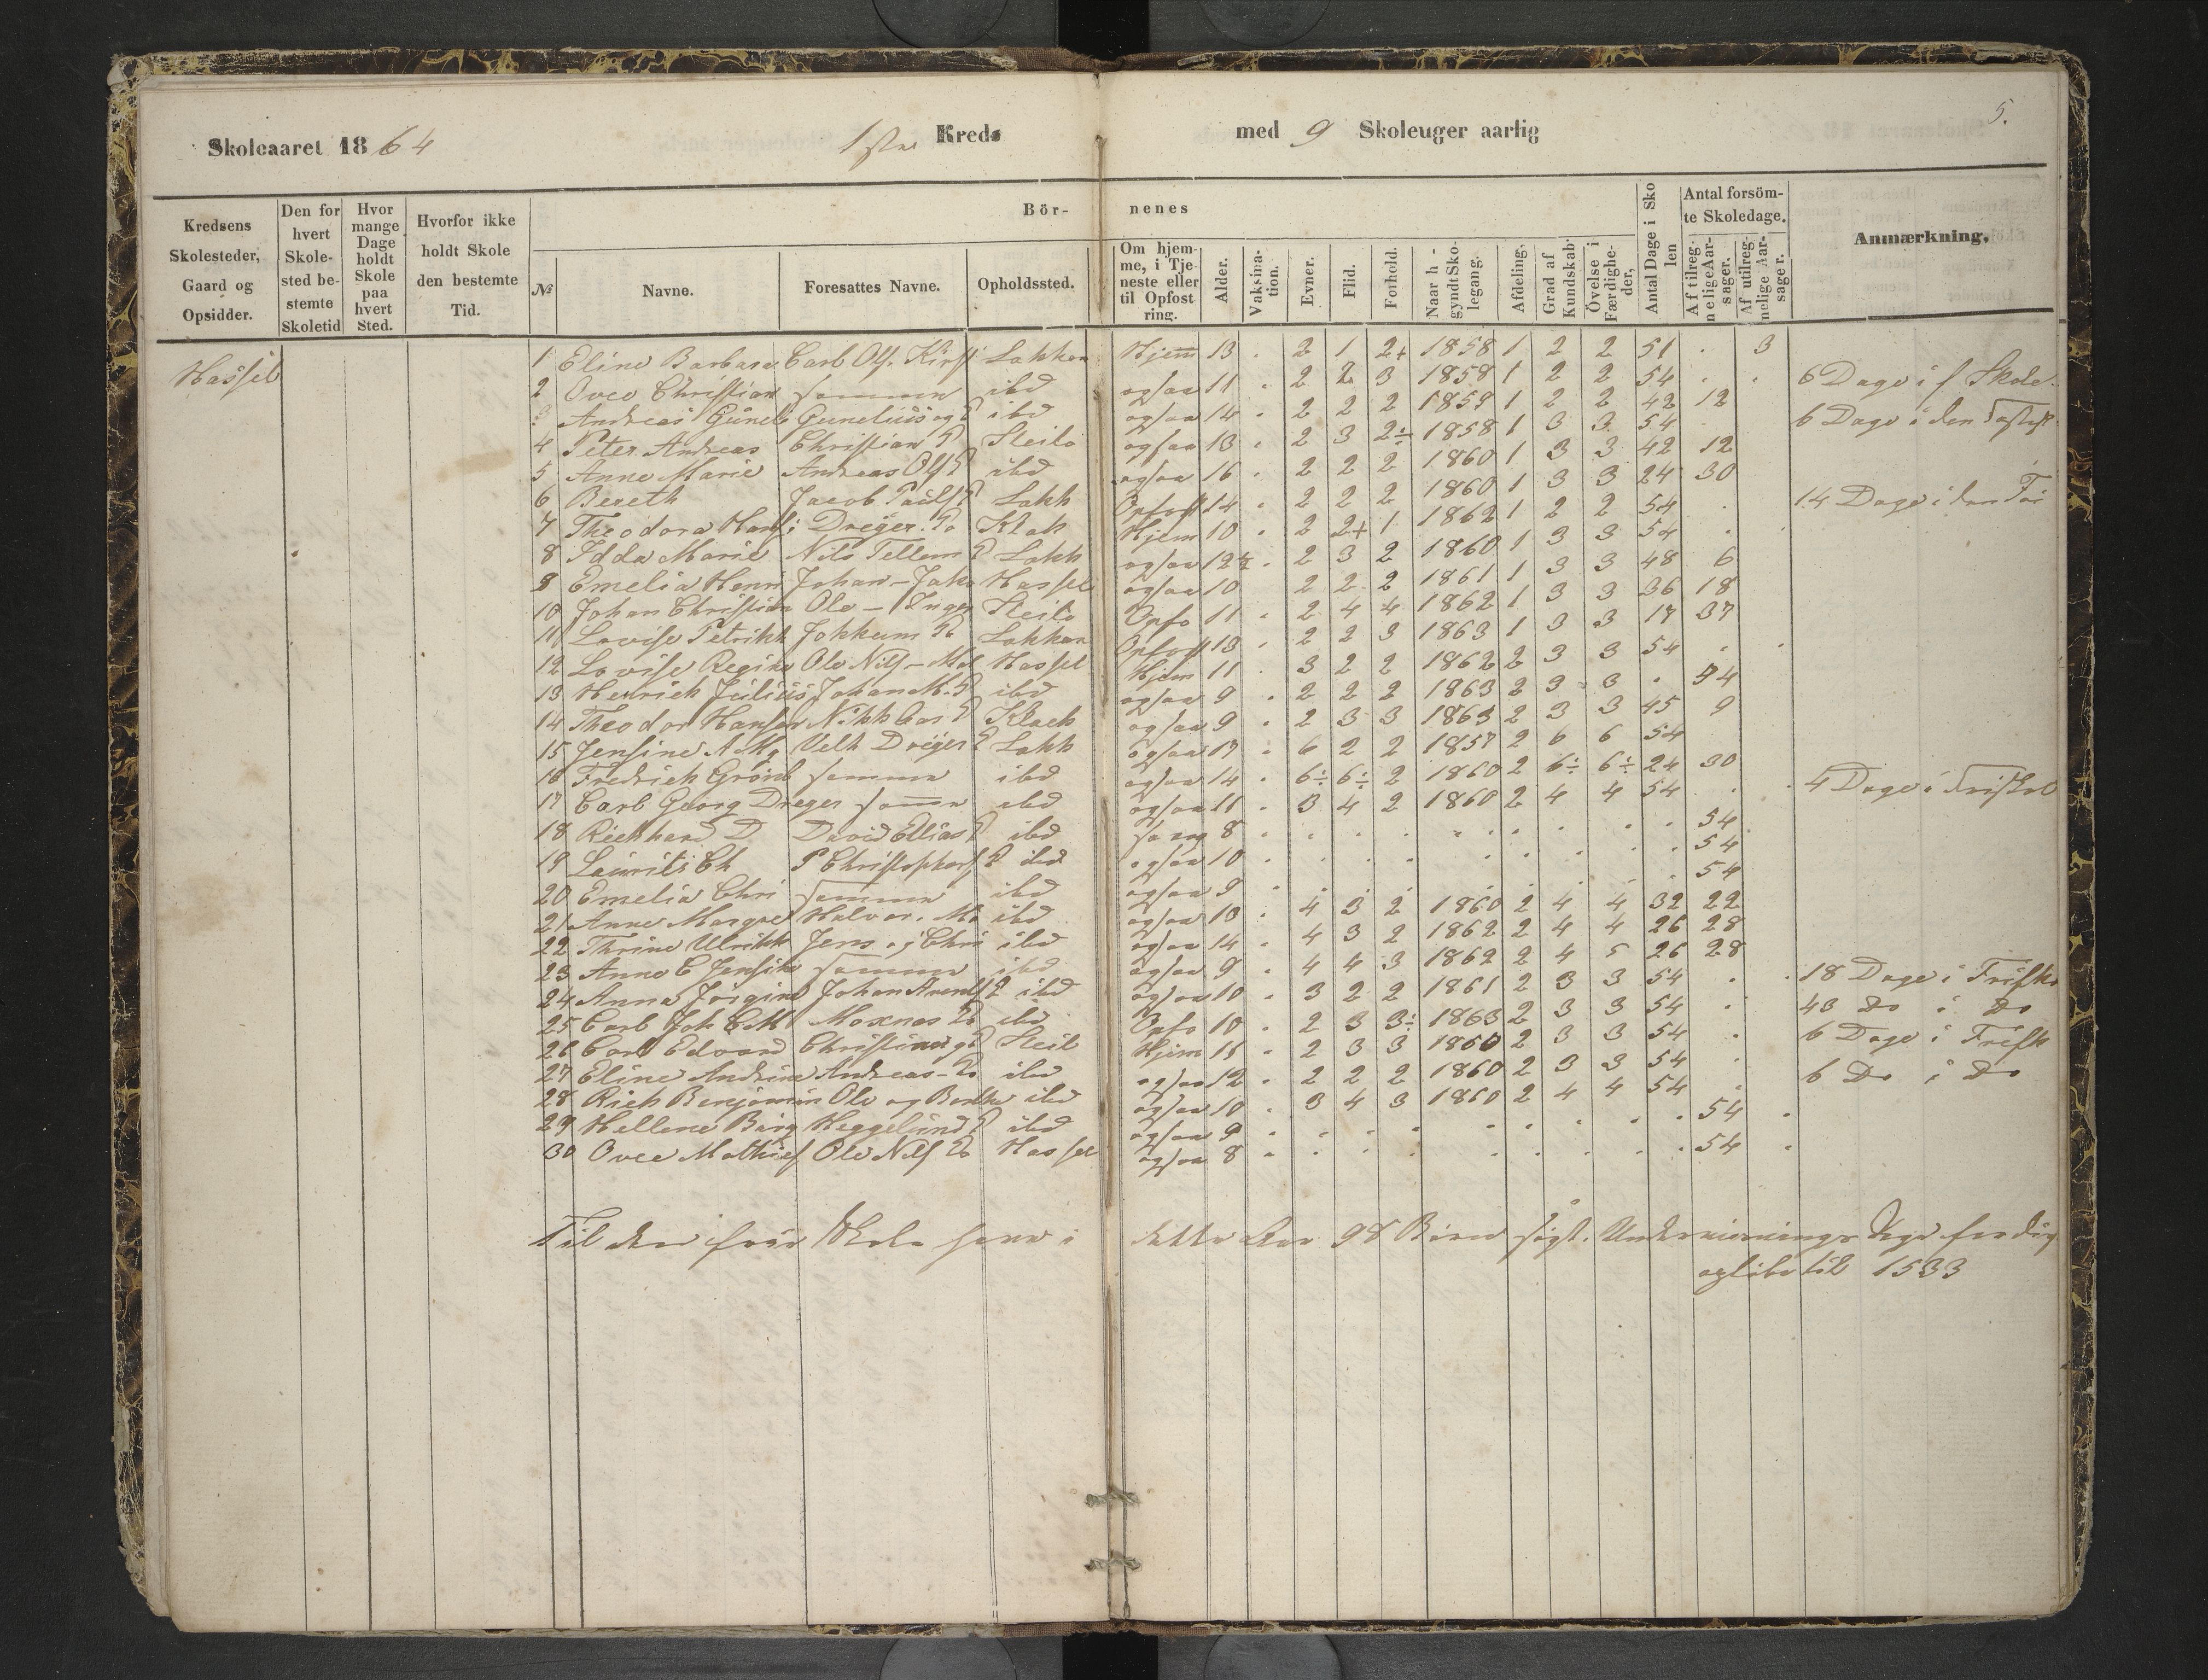 5.
Skoleaaret 1864 1ste Kreds med 9 Skoleuger aarlig
Kredsens Skolesteder, Gaard og Opsidder.
Den for hvert Skolested bestemte Skoletid
Hvor mange Dage holdt Skole paa hvert Sted.
Hvorfor ikke holdt Skole den bestemte Tid.
Bör- nenes
№
Navne.
Foresattes Navne.
Opholdssted.
Om hjemme, i Tjeneste eller til Opfostring.
Alder.
Vaksination.
Evner.
Flid.
Forhold.
Naar h - gyndt Skolegang.
Afdeling,
Grad af Kundskab.
Övelse i Færdigheder,
Antal Dage i Skolen
Antal forsömte Skoledage.
Af tilregnelige Aarsager.
Af utilregnelige Aarsager.
Anmærkning.
Hassel
1 Eline Barbara Carl Ols. Kirst Lakken Hjem 13 . 2 1 2+ 1858 1 2 2 51 . 3
2 Ovee Christian samme ibd ogsaa 11 . 2 2 3 1858 1 2 2 54 . . 6 Dage i f Skole.
3 Andreas Gunel Gunelius og ibd ogsaa 14 . 2 2 2 1859 1 2 2 42 12
4 Peter Andreas Christian Steilo ogsaa 13 . 2 3 2÷ 1858 1 3 3 54 . 6 Dage i den
5 Anne Marie Andreas Ols ibd ogsaa 16 . 2 2 2 1860 1 3 3 42 12
6 Bereth Jacob Pauls Lakk Opfost 14 . 2 2 2 1860 1 3 3 24 30
7 Theodora Hans Dreyer. Klak Hjem 10 . 2 2+ 1 1862 1 2 2 54 . 14 Dage i den Fri
8 Idda Marie Nils Tellem Lakk ogsaa 12½ . 2 3 2 1860 1 3 3 54 .
8 Emelia Henri Johan - Jako Hassel ogsaa 10 2 2 2 1861 1 3 3 48 6
10 Johan Christian Ole - Inger Steilo Opfo 11 . 2 4 4 1862 1 3 3 36 18
11 Lovise Petrikk Jokkum Lakken Opfost 13 . 2 2 3 1863 1 3 3 17 37
12 Lovise Regine Ole Nils - Mal Hassel Hjem 11 . 3 2 2 1862 2 3 3 54 . .
13 Henrich Julius Johan M. ibd ogsaa 9 . 2 2 2 1863 2 3 3 . 54
14 Theodor Hansen Nikk Klack ogsaa 9 . 2 3 3 1863 2 3 3 45 9
15 Jensine A Mg Velh Dreyer Lakk ogsaa 17 . 6 2 2 1857 2 6 6 54
16 Fredrick Grönb samme ibd ogsaa 14 . 6÷ 6÷ 2 1860 2 6÷ 6÷ 24 30
17 Carl Georg Dreyer samme ibd ogsaa 11 . 3 4 2 1860 2 4 4 54 . . 4 Dage i Friskol
18 Richhard D David Ellias ibd 8 . . . . . . . . . 54
19 Laurits Ch P Christophers ibd ogsaa 10 . . . . . . . . . 54
20 Emelia Chri samme ibd ogsaa 9 . . . . . . . . . 54
21 Anne Margret Halvor. Ma ibd ogsaa 10 . 4 3 2 1860 2 4 4 32 22
22 Thrine Ulrikk Jens og Chri ibd ogsaa 14 . 4 3 2 1862 2 4 4 26 28
23 Anne C Jensine samme ibd ogsaa 9 . 4 4 3 1862 2 4 5 26 28
24 Anna Jörgine Johan ibd ogsaa 10 . 3 2 2 1861 2 3 3 54 . . 18 Dage i Friskol
25 Carl Joh C M Moxnes ibd Opfo 10 . 2 3 3÷ 1863 2 3 3 54 . 43 Do i Do
26 Carl Edvard Christian og Steil Hjem 11 . 2 3 3 1860 2 3 3 54 . 6 Dage i Frisk
27 Eline Andrine Andreas - ibd ogsaa 12 . 2 2 2 1860 2 3 3 54 . 6 Do i Do
28 Rich Benjamin Ole og Berthe ibd ogsaa 10 . 3 4 3 1860 2 4 4 54 .
29 Hellene Birg Heggelund ibd ogsaa 9 . . . . . . . . . 54 .
30 Ovee Mathias Ole Nils Hassel ogsaa 8 . . . . . . . . . 54 .
Til den frie Skole have i dette Aar 98 Börn sögt. Undervisnings Dage
oglöbe til 1533